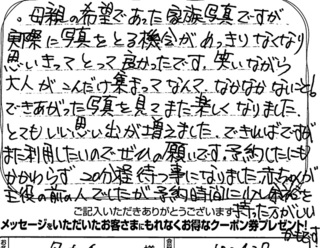 。母親の希望であった家族写真ですが
実際に写真をとる機会がめっきりなくなり
思いきってとって良かったです。笑いながら
大人がこんだけ集まってなんて、なかなかないこと！
できあがった写真を見てまた楽しくなりました。
とてもいい思い出が増えました。できればですが
また利用したいのでぜひお願いです。予約したにも
かかわらず20分程待つ事になりました。赤ちゃんが
主役の前の人でしたが予約時間に少し余裕を
ご記入いただきありがとうございます 持った方がいい
かもです
メッセージをいただいたお客さまにもれなくお得なクーポン券プレゼント!